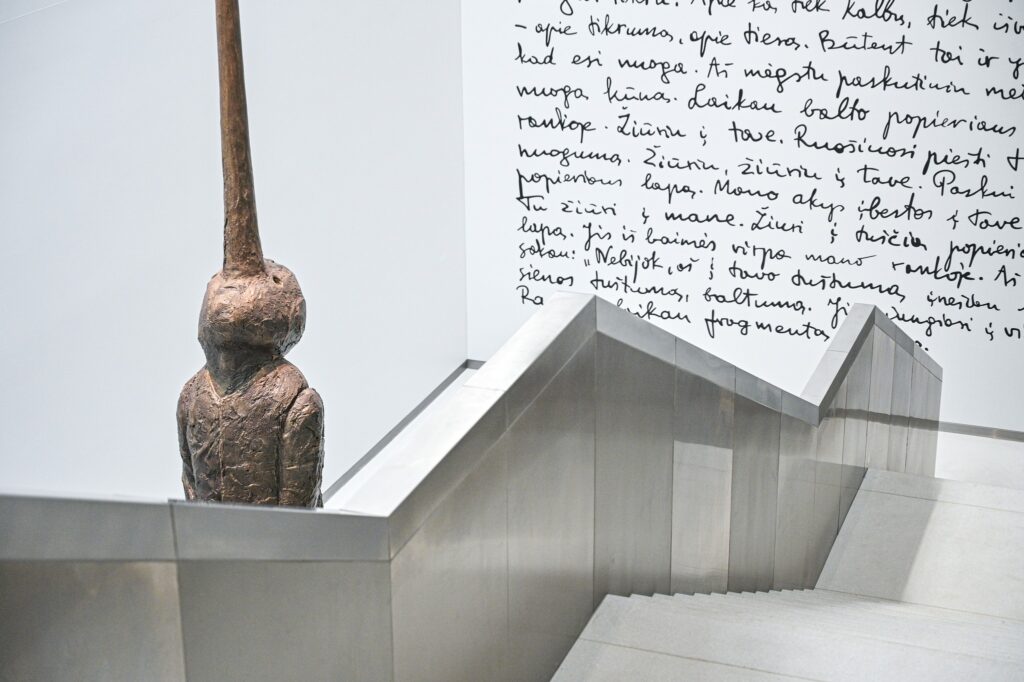 Apie ką tiek kalbu, tiek
- apie tikrumą, apie tiesą. Būtent tai ir
kad esi nuoga. Aš mėgstu paskutiniu
nuogą kūną. Laikau balto popieriaus
rankoje. Žiūriu į tave. Ruošiuosi piešti
nuogumą. Žiūriu, žiūriu į tave. Paskui
popieriaus lapą. Mano akys įbestos į tave
Tu žiūri į mane. Žiūri į tuščią
lapą. Jis iš baimės virpa mano rankoje. Aš
sakau: „Nebijok, aš į tavo tuštumą įnešiu
sienos tuštumą, baltumą. į
laikau fragmentą